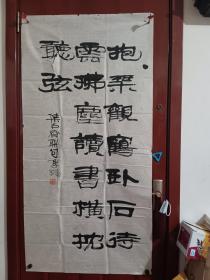 抱琴觀鶴卧石待
雲拂塵讀書橫枕
聽弦